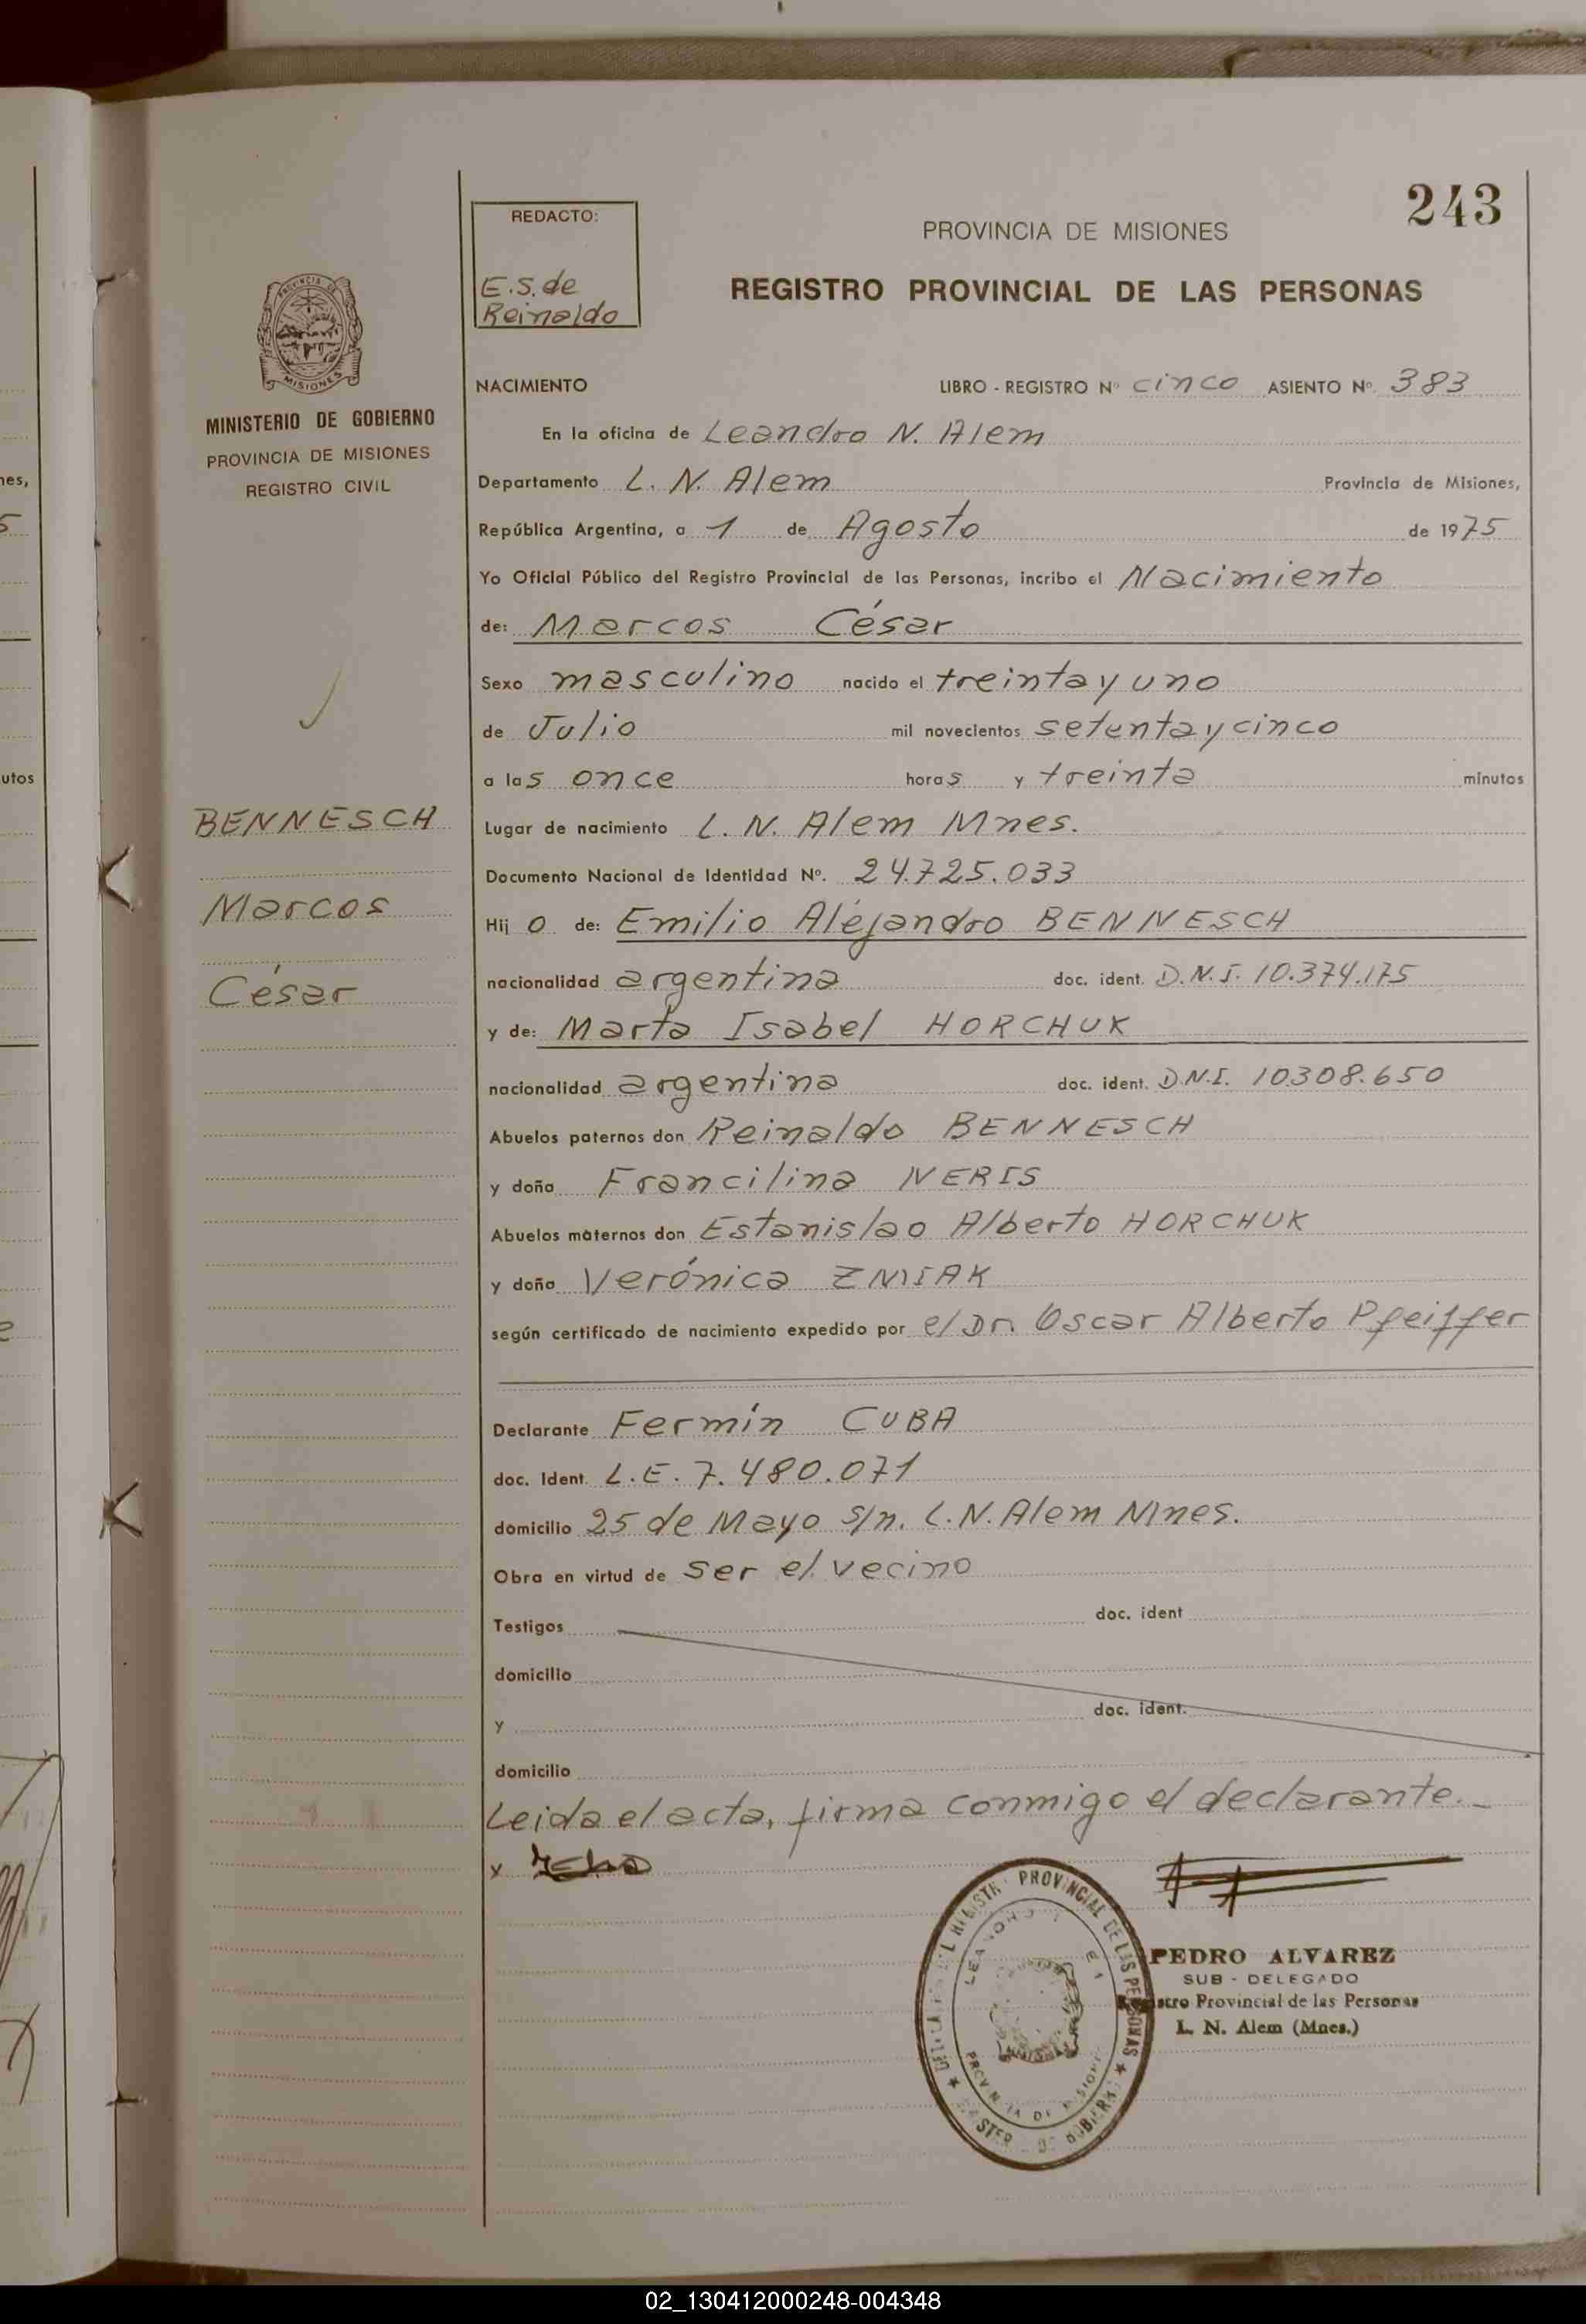 243
REDACTO:
E.S. de
Reinaldo
PROVINCIA DE MISIONES
REGISTRO PROVINCIAL DE LAS PERSONAS
MISIONES
MINISTERIO DE GOBIERNO
PROVINCIA DE MISIONES
REGISTRO CIVIL
NACIMIENTO LIBRO - REGISTRO Nº cinco ASIENTO Nº. 383
En la oficina de Leandro N. Alem
Departamento L. N. Alem Provincia de Misiones,
República Argentina, a 1 de Agosto de 1975
Yo Oficial Público del Registro Provincial de las Personas, incribo el Nacimiento
de: Marcos César
Sexo masculino nacido el treinta y uno
de Julio mil novecientos setenta y cinco
a las once horas y treinta minutos
BENNESCH
Marcos
César
Lugar de nacimiento L. N. Alem Mnes.
Documento Nacional de Identidad Nº. 24.725.033
Hij o de: Emilio Alejandro BENNESCH
nacionalidad argentina doc. ident. D.N.I. 10.374.175
y de: Marta Isabel HORCHUK
nacionalidad argentina doc. ident. D.N.I. 10308.650
Abuelos paternos don Reinaldo BENNESCH
y doña Francilina NERIS
Abuelos maternos don Estanislao Alberto HORCHUK
y doña Verónica
según certificado de nacimiento expedido por el Dr. Oscar Alberto Pfeiffer
Declarante Fermín CUBA
doc. Ident. L.E. 7.480.071
domicilio 25 de Mayo s/n. L.N. Alem Mnes.
Obra en virtud de ser el vecino
Testigos doc. ident
domicilio
y doc. ident.
domicilio
Leida el acta, firma conmigo el declarante.-
x
PROVINCIAL DE LAS PERSONAS
PEDRO ALVAREZ
SUB - DELEGADO
Registro Provincial de las Personas
L. N. Alem (Mnes.)
nes,
5
utos
02_130412000248-004348